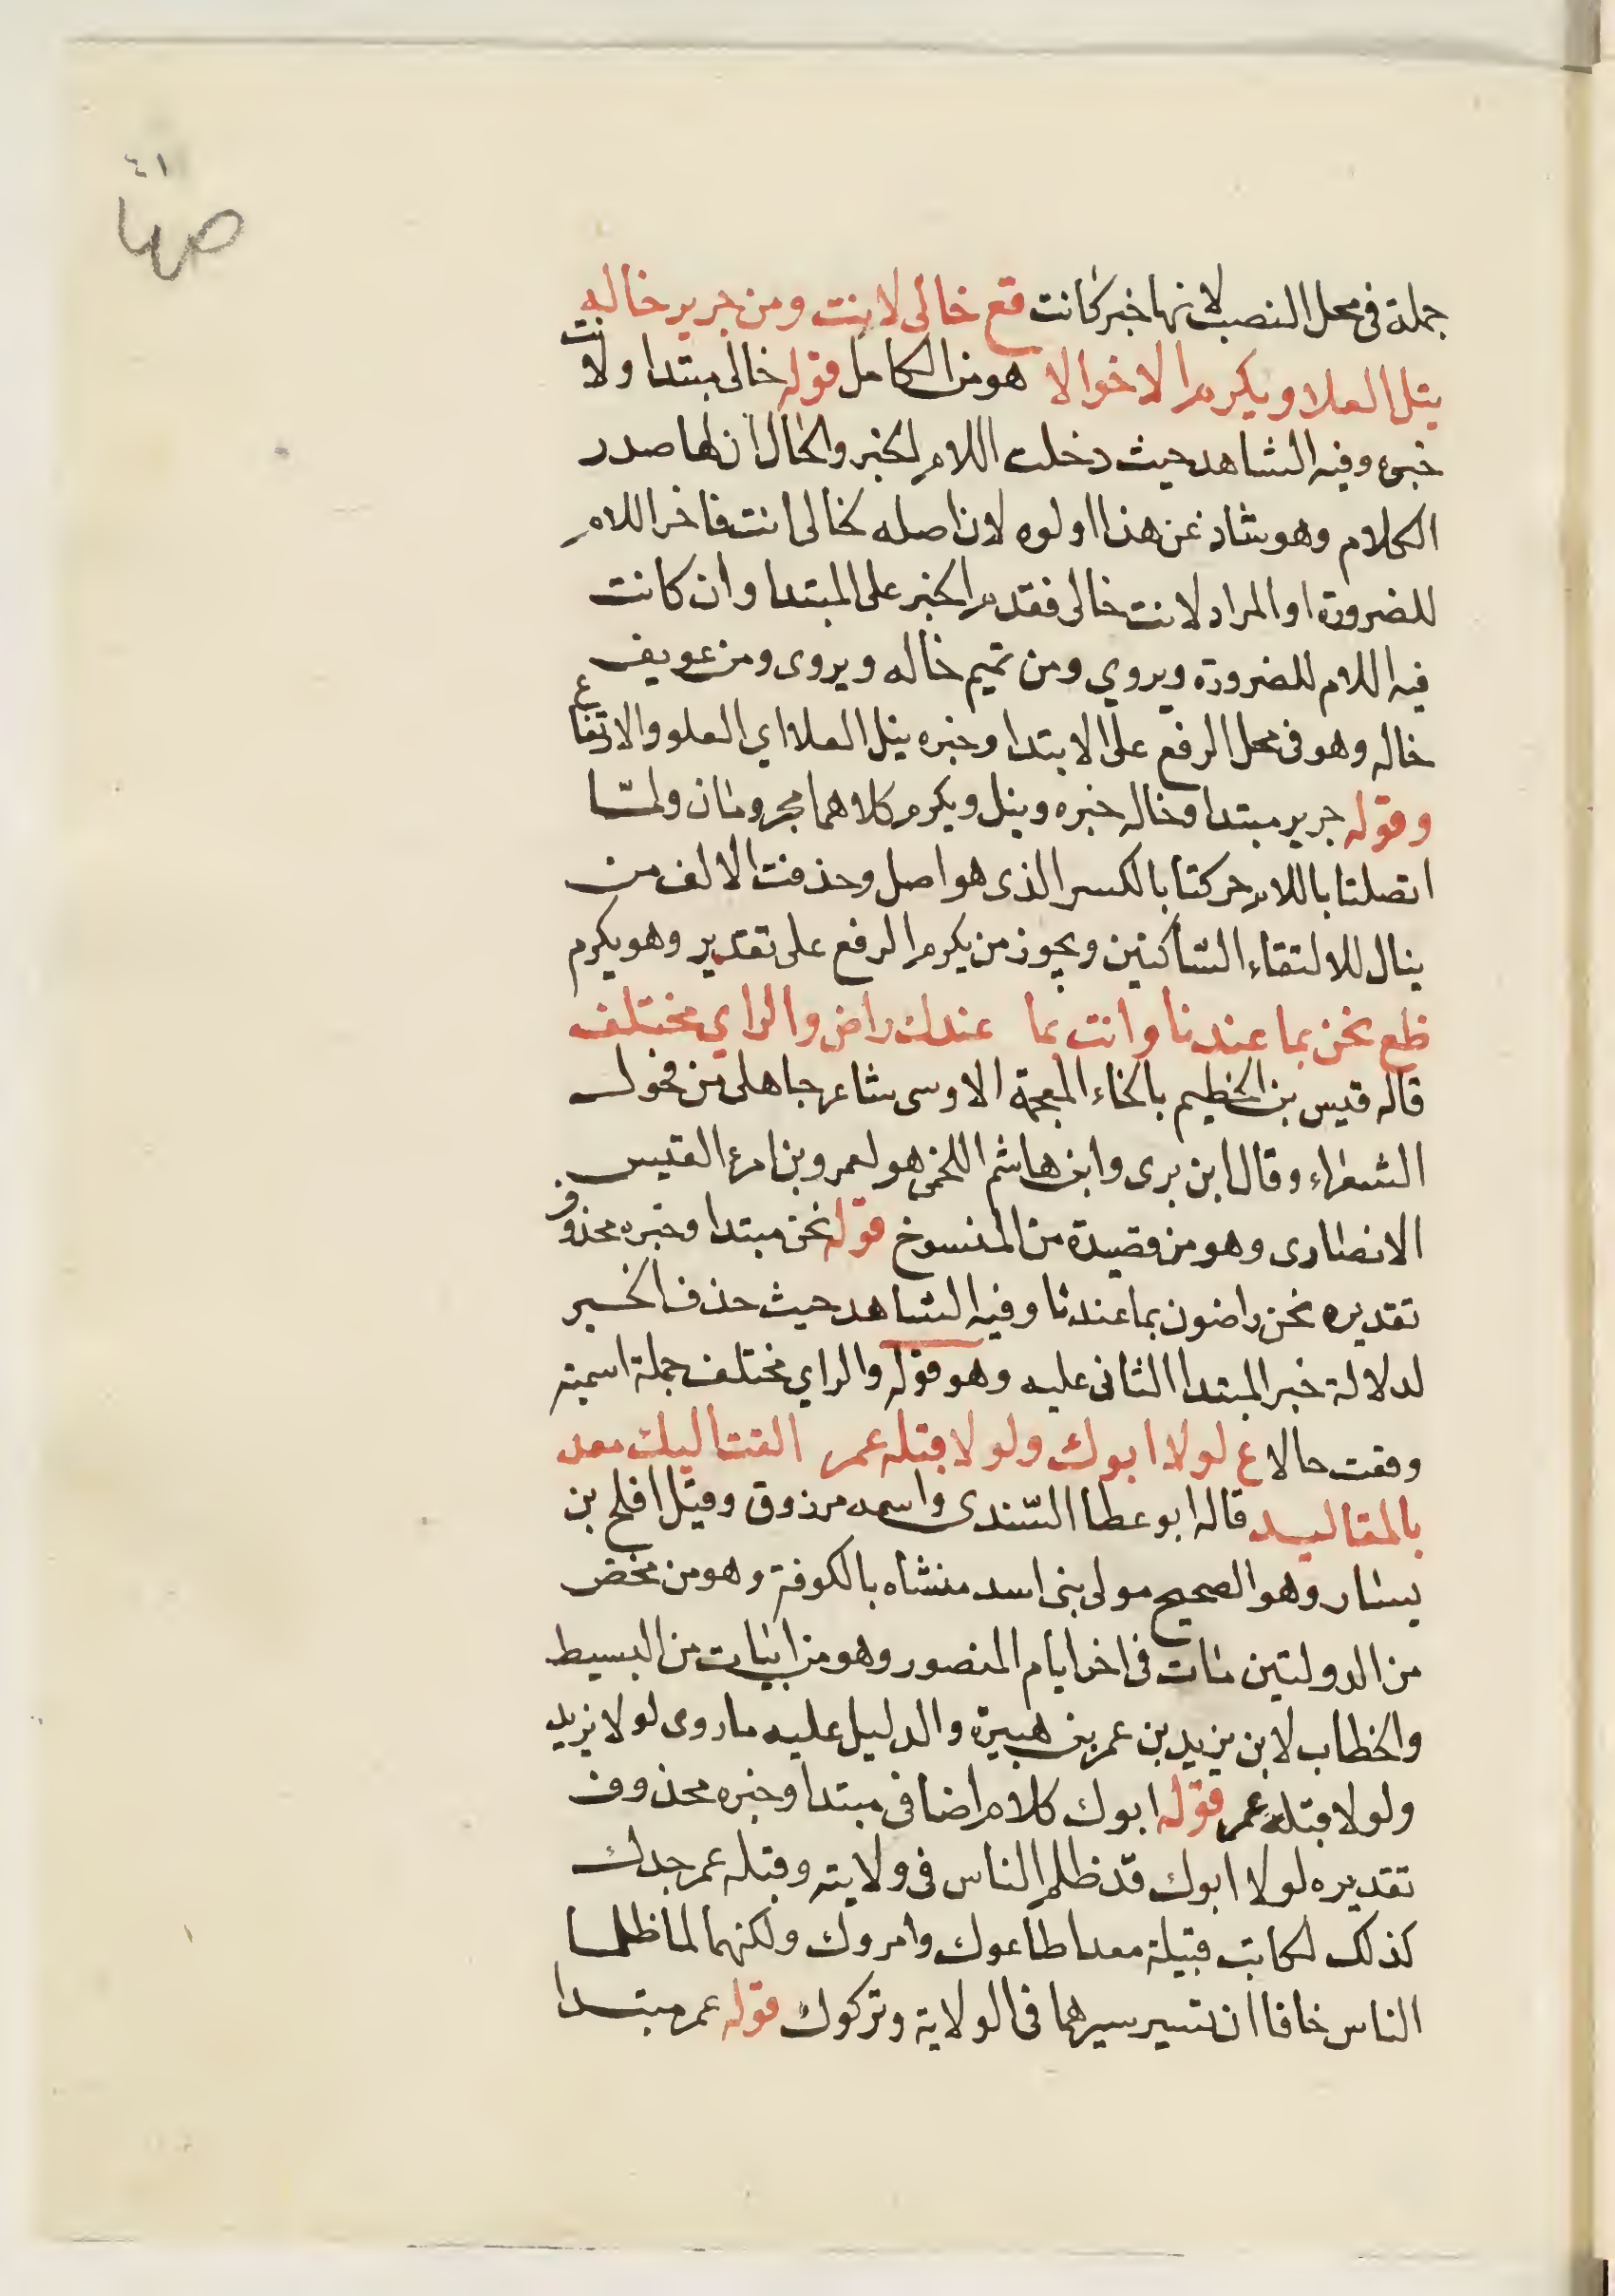 ٤١
جملة فى محل النصب لانها خبر كانت قع خالى لانت ومن جرير خاله
ينل العلا ويكرم الاخوالا هو من الكامل قوله خالى مبتدا ولانت
خبره وفيه الشاهد حيث دخلت اللام لخبر والحال ان لها صدر
الكلام وهو شاذ عن هذا اولوه لان اصله لخالى انت فاخر اللام
للضرورة او المراد لانت خالى فقدم الخبر على المبتدا وان كانت
فيه اللام للضرورة ويروي ومن تميم خاله ويروى ومن عويف
خاله وهو فى محل الرفع على الابتدا وخبره ينل العلا اي العلو والارتفاع
وقوله جرير مبتدا وخاله خبره وينل ويكرم كلاهما مجرومان ولمّا
اتصلتا باللام حركتا بالكسر الذى هو اصل وحذفت الالف من
ينال للالتقاء السّاكنين ويجوز من يكرم الرفع على تقدير وهو يكرم
ظع نحن بما عندنا وانت بما عندك راض والراي مختلف
قاله قيس بن الخطيم بالخاء المعجمة الاوسى شاعر جاهلى من فحول
الشعراء وقال ابن برى وابن هاشم اللخمى هو لعمرو بن امرء القيس
الانصارى وهو من قصيدة من المنسوخ قوله نحن مبتدا وخبره محذوف
تقديره نحن راضون بما عندنا وفيه الشاهد حيث حذف الخبر
لدلالة خبر المبتدا الثانى عليه وهو قوله والراي مختلف جملة اسمية
وقعت حالا ع لولا ابوك ولولا قبله عمر القت اليك معد
بالمقاليد قاله ابو عطا السّندى واسمه مرزوق وقيل افلح بن
يسار وهو الصحيح مولى بنى اسد منشاه بالكوفة وهو من مخض
من الدولتين مات فى اخر ايام المنصور وهو من ابيات من البسيط
والخطاب لابن يزيد بن عمر بن هبيرة والدليل عليه ما روى لولا يزيد
ولولا قبله عمر قوله ابوك كلام اضافى مبتدا وخبره محذوف
تقديره لولا ابوك قد ظلم الناس فى ولايته وقبله عمر جدك
كذلك لكانت قبيلة معد اطاعوك وامروك ولكنهما لما ظلما
الناس خافا ان تسير سيرهما فى الولاية وتركوك قوله عمر مبتدا